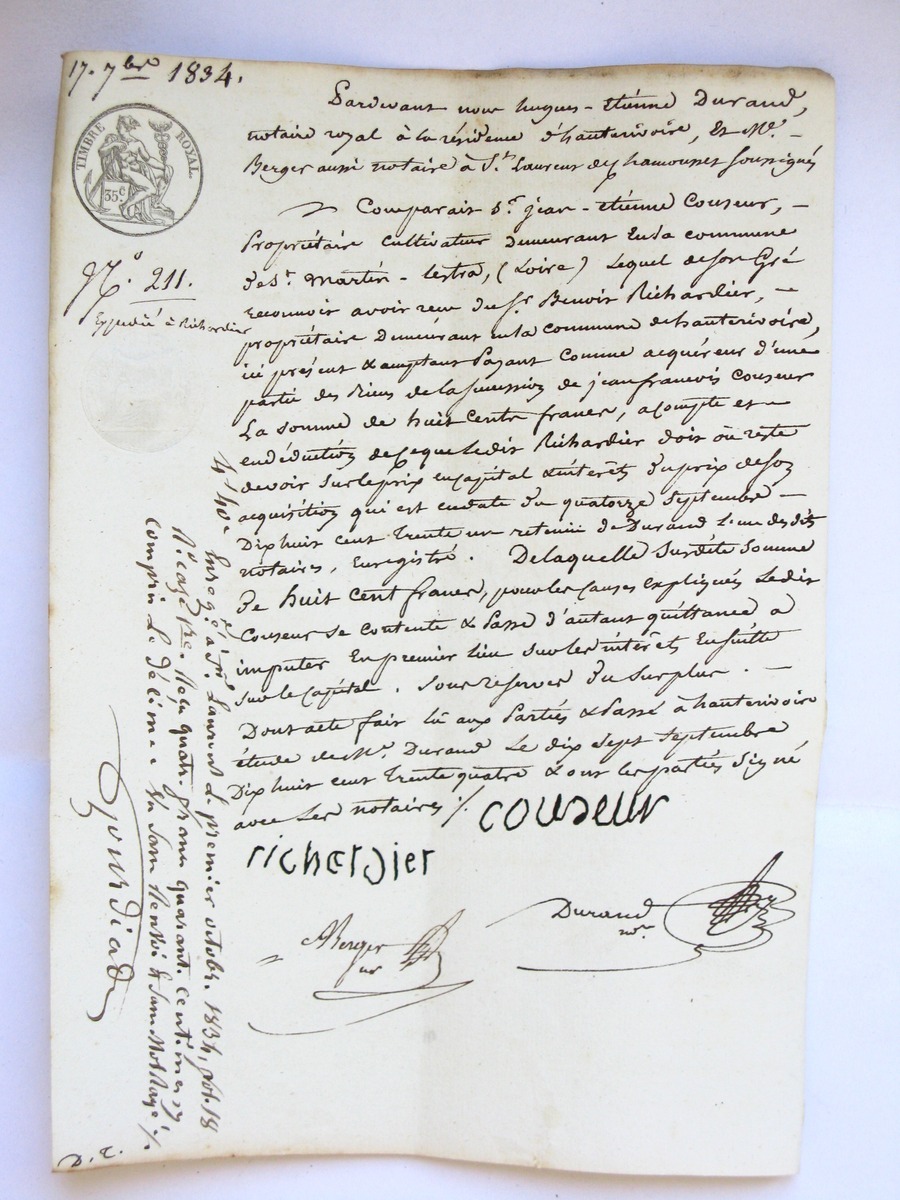 17. 7bre 1834.
TIMBRE ROYAL
35c
N.º 211.
Expédié à Richardier
Pardevant nous hugues - etiénne Durand,
notaire royal à la résidence d'hauterivoire, Et Me. -
Berger aussi notaire à St. Laurent de Chamousset soussignés
Comparait Sr. jean - etiénne Couseur, -
Propriétaire Cultivateur demeurant En la commune
de St. Martin - lestra, (Loire) Lequel de son Gré
reconnoit avoir reçu du Sr. Benoit Richardier, -
propriétaire demeurant en la commune de hauterivoire,
ici présent & acceptant Payant Comme acquéreur d'une
partie des Biens de la succession de jean francois Couseur
La somme de huit Cents francs, acompte et -
en déduction de Ce que Ledit Richardier doit ou reste
devoir sur le prix en Capital & intérêts du prix de son
acquisition qui est en date du quatorze Septembre -
Dix huit cent trente un retenue de Durand l'un des dits
nôtaires, Enregistré. De laquelle Susdite Somme
de huit Cent francs, pour les Causes Expliquées Ledit
Couseur se Contente & Passe d'autant quittance a
imputer En premier lieu sur les intérêts Ensuitte
sur le Capital. Sous reserves du Surplus. -
Dont acte fait lû aux Parties & Passé à hauterivoire
étude de Me. Durand Le dix Sept Septembre
Dix huit cent trente quatre & ont les parties Signé
avec Les notaires ./.
couseur
richerdier
Berger
Durand
nre
Enregé à St. Laurent le premier octobre 1834, fol. 18
Rº case 1re. Reçu quatre francs quarante centimes
compris Le décime
4 f 40c
Gourdiad
D. C.